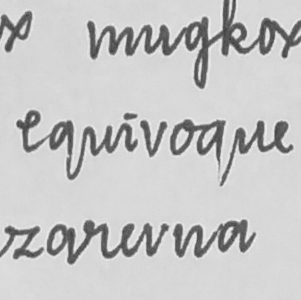 x mugkox
equivoque
zarevna